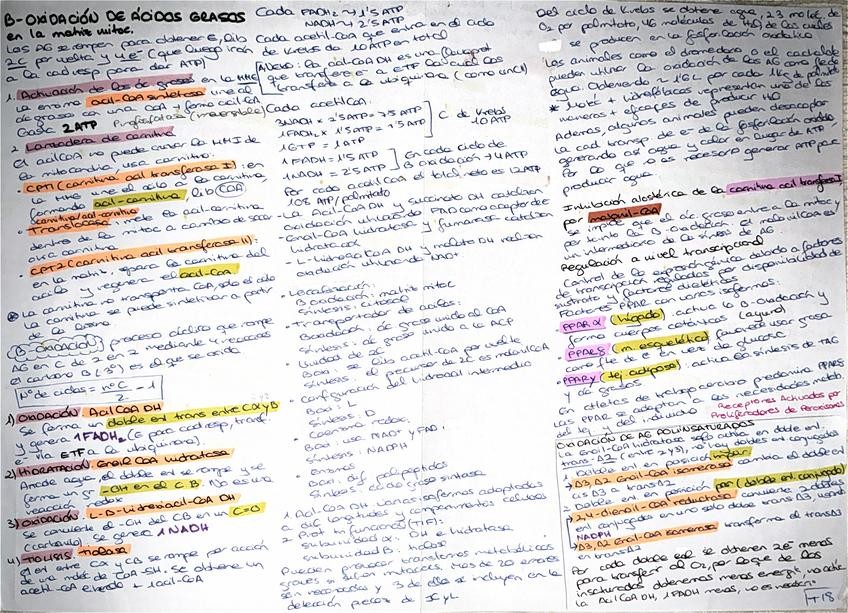 B-OXIDACIÓN DE ÁCIDOS GRASOS
en la matriz mitoc.
Los AG se rompen para obtener E, lib
2C por vuelta y 4e⁻ (que luego irán
a la cad resp para dar ATP)
1. Activación de los ác grasos en la MME
La enzima acil-CoA sintetasa une al
ác graso con una CoA y forma acil CoA
Gasta 2ATP Pirofosfatasa (irreversible)
2. Lanzadera de carnitina
El acilCoA no puede cruzar la MMI de
la mitocondria usa carnitina:
· CPT1 (carnitina acil transferasa I): en
la MME une el acilo a la carnitina
formando acil-carnitina, lib CoA
· Translocasa: mete la acil-carnitina
dentro de la mito a cambio de sacar
otra carnitina
· CPT2 (carnitina acil transferasa II):
en la matriz, separa la carnitina del
acilo y regenera el acil-CoA
La carnitina no transporta CoA, solo el acilo
La carnitina se puede sintetizar a partir
de la lisina.
B-OXIDACIÓN: proceso cíclico que rompe
AG en C de 2 en 2 mediante 4 reacciones
el carbono B (3º) es el que se oxida
Nº de ciclos = nºC / 2 - 1
1) OXIDACIÓN Acil CoA DH
Se forma un doble enl trans entre Cα y B
y genera 1FADH₂ (E para cad resp, transf.
e⁻ vía ETF a la ubiquinona).
2) HIDRATACIÓN. Enoil CoA hidratasa
Añade agua, el doble enl se rompe y se
forma un gr -OH en el C B. No es una
reacción redox
3) OXIDACIÓN L-B-hidroxiacil-CoA DH
Se convierte el -OH del CB en un C=O
(carbonilo), se genera 1NADH
4) TIOLISIS Tiolasa
El enl entre Cα y CB se rompe por acción
de una mólec de CoA-SH. Se obtiene un
acetil-CoA + 1 acil-CoA
Cada FADH₂ → 1'5 ATP
NADH → 2'5 ATP
Cada acetil-CoA que entra en el ciclo
de Krebs da 10ATP en total
la acil-CoA DH es una flavoprot
que transfiere e⁻ a ETF la cual los
transfiere a la ubiquinona
Cada acetilCoA:
3NADH x 2'5ATP = 7'5 ATP
1FADH₂ x 1'5ATP = 1'5 ATP
1GTP = 1 ATP
C. de Krebs
10 ATP
1 FADH = 1'5 ATP
1 NADH = 2'5 ATP
En cada ciclo de
B oxidación → 4 ATP
Por cada acetil CoA el total neto es 12 ATP
108 ATP/palmitato
- La Acil CoA DH y succinato DH catalizan
oxidación utilizando FAD como aceptor de
- Enoil-CoA hidratasa y fumarasa catalizan
hidratación
- L-hidroxiCoA DH y malato DH realizan
oxidación utilizando NAD⁺
· Localización:
B oxidación: matriz mitoc
Síntesis: citosol
· Transportador de acilos:
Boxidación: ác graso unido al CoA
Síntesis: ác graso unido a la ACP
· Unidad de 2C
Boxi: se lib acetil CoA por vuelta
Síntesis: el precursor de 2C es malonilCoA
· Configuración del hidroxiacil intermedio
Boxi: L
Síntesis: D
· Coenzima redox:
Boxi: usa NAD⁺ y FAD:
Síntesis: NADPH
· Enzimas
Boxi: dif. polipéptidos
Síntesis: ácido graso sintasa
1. Acil-CoA DH varias isoformas adaptadas
a dif longitudes y compartimentos celulares
2. Prot trifuncional (TIF):
subunidad α: DH e hidratasa
subunidad B: tiolasa
Pueden provocar trastornos metabólicos
graves si sufren mutaciones. Más de 20 errores
son reconocidos y 3 de ella se incluyen en la
detección precoz de
Del ciclo de Krebs se obtiene agua, 23 moléc de
O₂ por palmitato, 46 moléculas de H₂O de las cuales
se producen en la fosforilación oxidativa
Los animales como el dromedario o el cachalote
pueden utilizar la oxidación de los AG como fte de
agua. Obteniendo ~ 1'6L por cada 1Kg de
Además, algunos animales pueden desacoplar
la cad transp de e⁻ de la fosforilación oxida,
generando así agua y calor en lugar de ATP.
Por lo que no es necesario generar ATP para
producir agua.
Inhibición alostérica de la carnitina acil transferasa I
por malonil-CoA
Se impide que el ác graso entre a la mitoc y
por tanto la B oxidación. El malonilCoA es
un intermediario de la síntesis de AG
Regulación a nivel transcripcional
Control de la expresión génica debido a factores
de transcripción regulados por disponibilidad de
sustrato y factores dietéticos
Factores PPAR con varias isoformas:
· PPAR α (hígado): activa la B-oxidación y
forma cuerpos cetónicos (ayuno)
· PPARδ (m. esquelético): favorece uso grasa
como fte de E en vez de glucosa.
· PPARγ (tej. adiposo): activa la síntesis de TAG
y ác grasos.
En atletas de trabajo aerobico predomina PPARδ
Las PPAR se adaptan a las necesidades metab.
del tej y del individuo
Receptores Activados por
Proliferadores de Peroxisomas
OXIDACIÓN DE AG POLIINSATURADOS
La enoil-CoA hidratasa solo actúa en doble enl.
trans-Δ2 (entre 2 y 3), si hay dobles en conjugados
1 Doble enl en posición impar
→ Δ3, Δ2 Enoil-CoA isomerasa cambia el doble enl
cis Δ3 a transΔ2
2 Doble enl en posición par (doble enl conjugado)
→ 2,4-dienoil-CoA reductasa convierte 2 dobles
enl conjugados en uno solo doble trans Δ3, usando
NADPH
→ Δ3, Δ2 Enoil CoA isomerasa transforma el transΔ3
en transΔ2
Por cada doble enl se obtienen 2E⁻ menos
para transferir al O₂, por lo que de los
insaturados obtenemos menos energía, no actúa
la Acil CoA DH, 1FADH menos,
T18